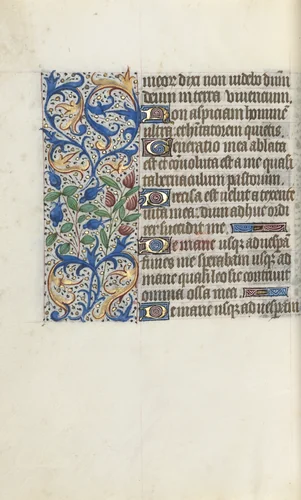 meor dixi non videbo dnm
deum in terra viventium.
Non aspiciam hominē
ultra: et habitatorem quietis.
Generatio mea ablata
est et convoluta est a me quasi
tabernaculum pastorum.
Precisa est velut a texente
vita mea: dum adhuc ordi
rer succidit me.
De mane usq; ad vespe
ram finies me sperabam usq; ad
mane quasi leo sic contrivit
omnia ossa mea
De mane usq; ad vesperam